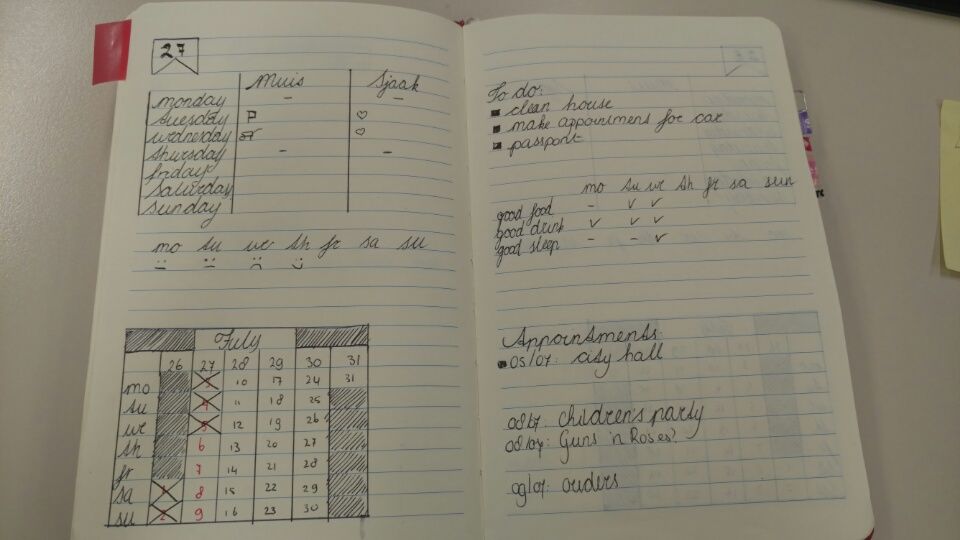 27
Muis Sjaak
monday - -
tuesday P ♡
wednesday ♡
thursday - -
friday
saturday
sunday
mo tu we th fr sa su
July
26 27 28 29 30 31
mo 3 10 17 24 31
tu 4 11 18 25
we 5 12 19 26
th 6 13 20 27
fr 7 14 21 28
sa 1 8 15 22 29
su 2 9 16 23 30
To do:
clean house
make appointment for car
passport
mo tu we th fr sa sun
good food - v v
good drink v v v
good sleep - - v
Appointments:
05/07: city hall
08/07: children's party
08/07: Guns 'n Roses?
09/07: ouders